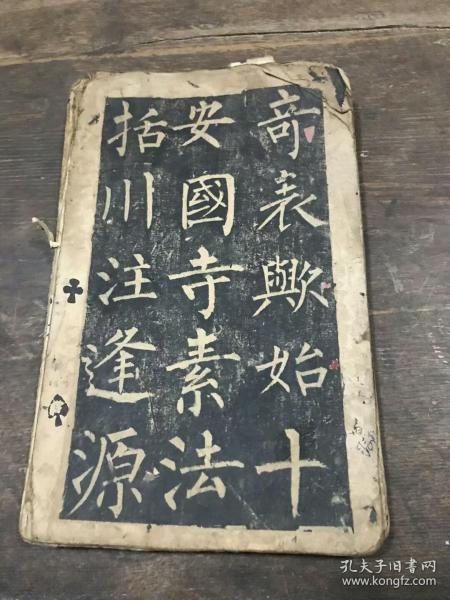 竒表歟始十
安國寺素法
括川注逢源
孔夫子旧书网
www.kongfz.com